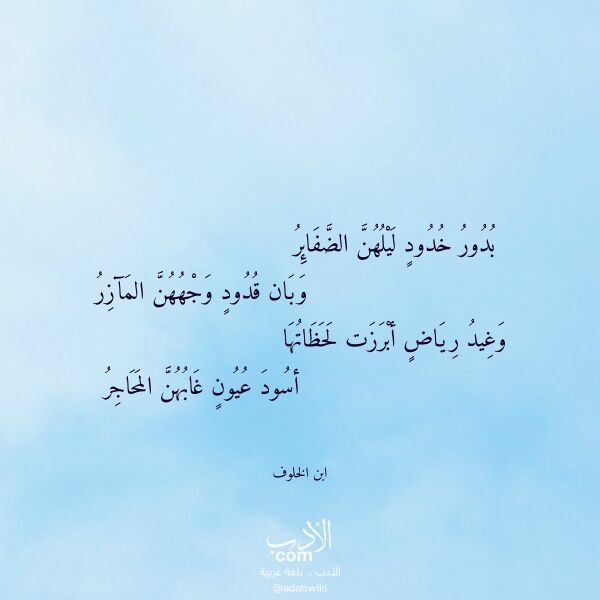 بُدُورُ خُدُودٍ لَيْلُهُنَّ الضَّفَائِرُ
وَبَان قُدُودٍ وَجْهُهُنَّ المَآزِرُ
وَغِيدُ رِيَاضٍ أبْرَزَت لَحَظَاتُهَا
أسُودَ عُيُونٍ غَابُهُنَّ المَحَاجِرُ
ابن الخلوف
الأدب
com
الأدب .. بلغة عربية
@adabwiki